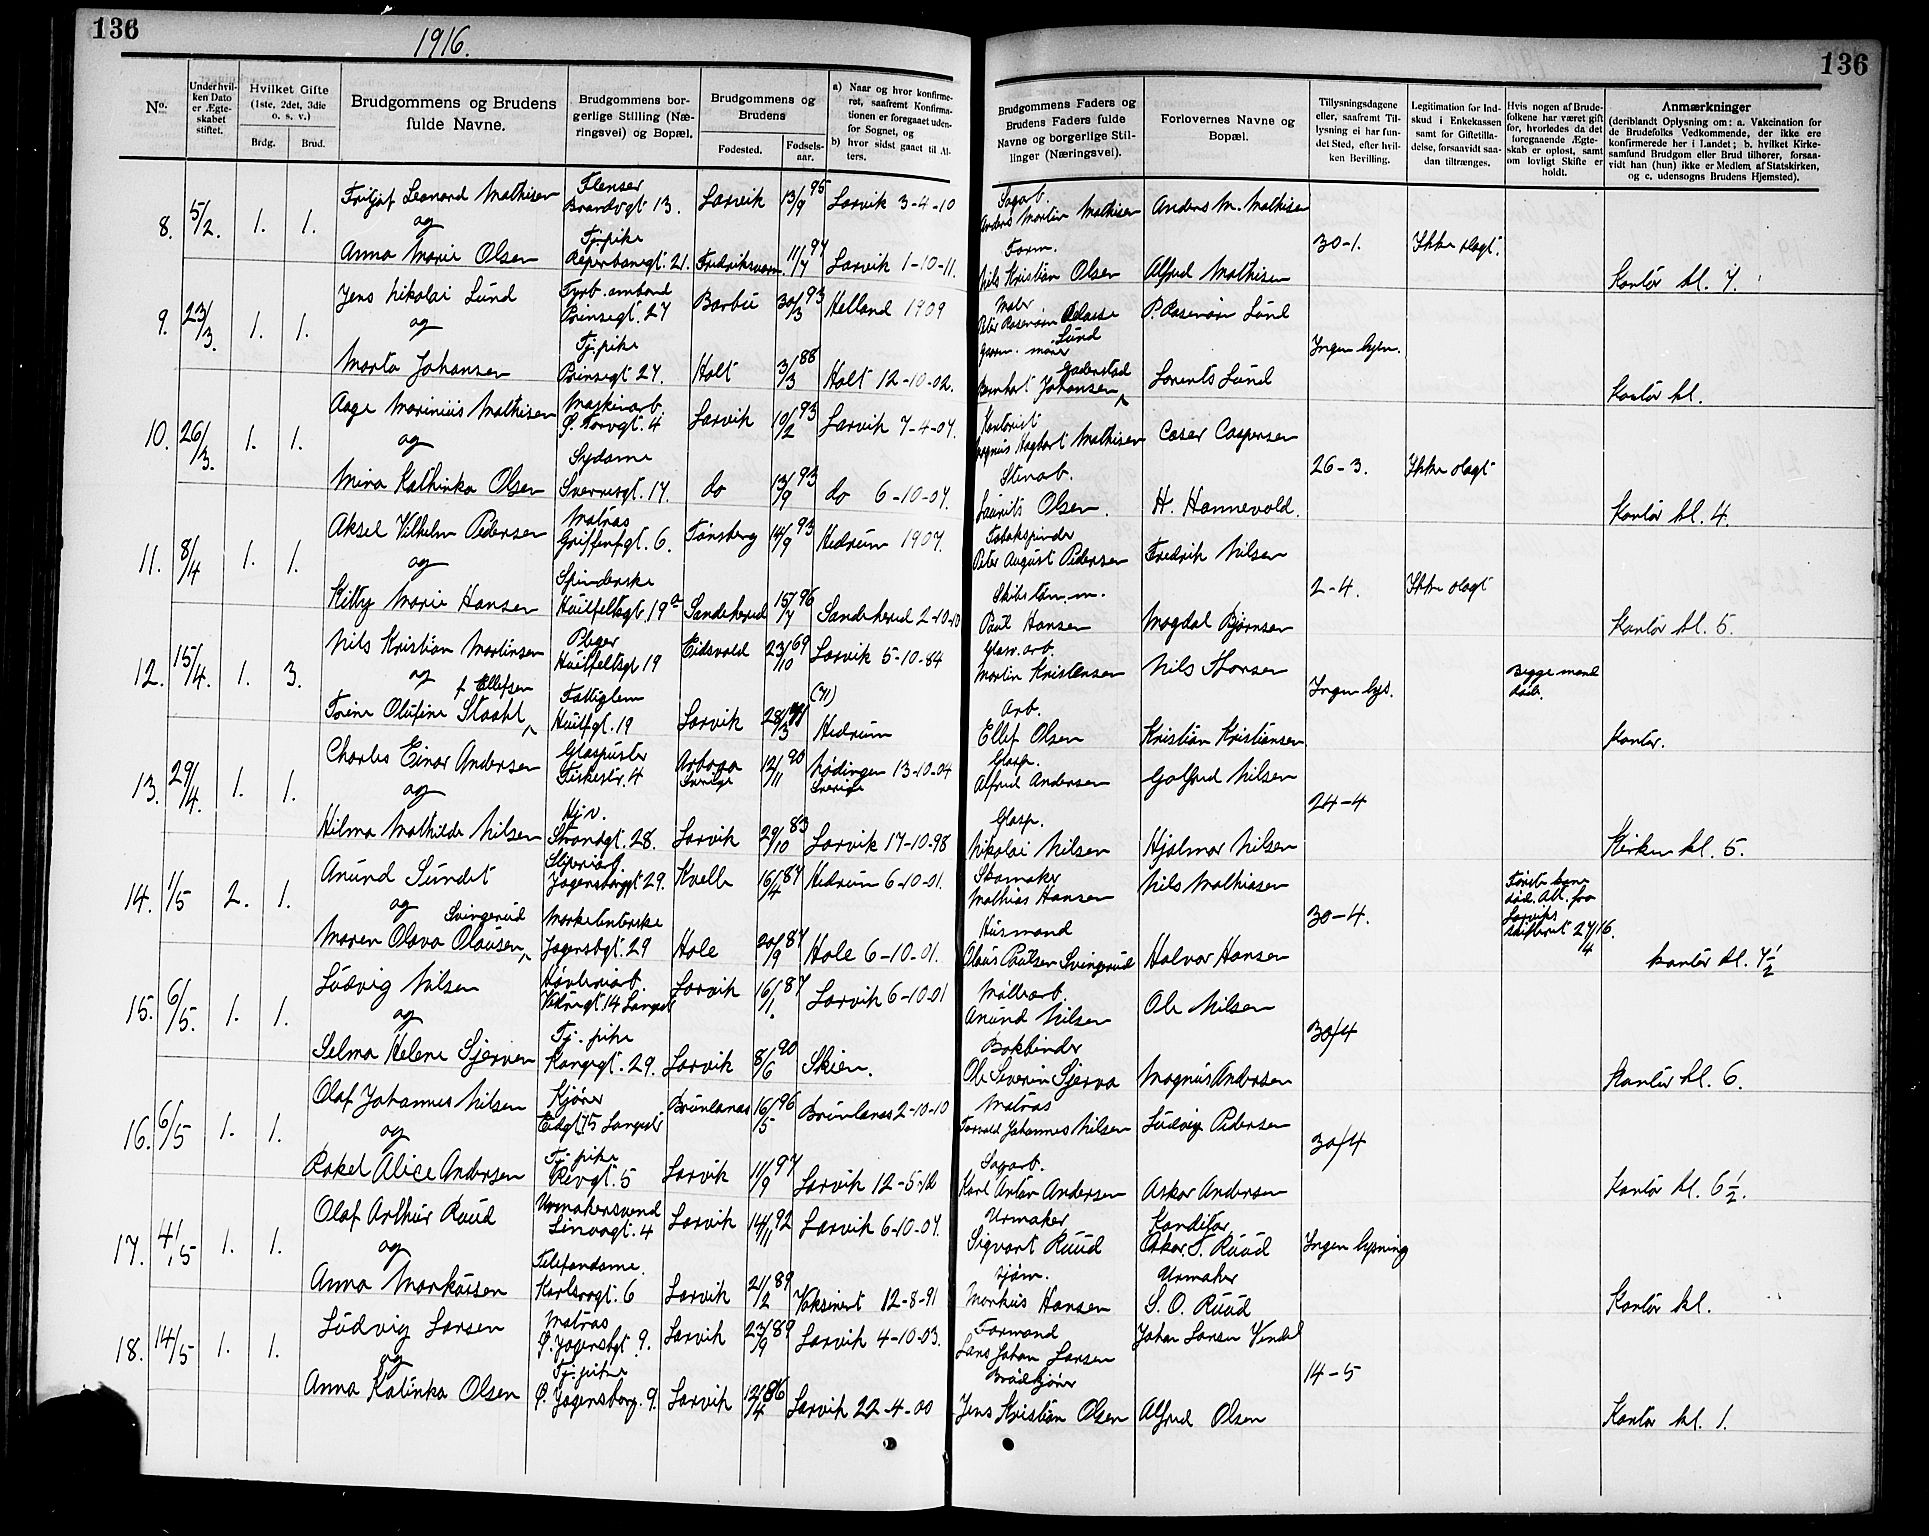 136
1916.
136
No.
Under hvilken Dato er Ægteskabet stiftet.
Hvilket Gifte (1ste, 2det, 3die o. s. v.)
Brdg.
Brud.
Brudgommens og Brudens fulde Navne.
Brudgommens borgerlige Stilling (Næringsvei) og Bopæl.
Brudgommens og Brudens
Fødested.
Fødselsaar.
a) Naar og hvor konfirmeret, saafremt Konfirmationen er foregaaet udenfor Sognet, og
b) hvor sidst gaaet til Alters.
Brudgommens Faders og Brudens Faders fulde Navne og borgerlige Stillinger (Næringsvei).
Forlovernes Navne og Bopæl.
Tillysningsdagene eller, saafremt Tillysning ei har fundet Sted, efter hvilken Bevilling.
Legitimation for Indskud i Enkekassen samt for Giftetilladelse, forsaavidt saadan tiltrænges.
Hvis nogen af Brudefolkene har været gift før, hvorledes da det foregaaende Ægteskab er opløst, samt om lovligt Skifte er holdt.
Anmærkninger
(deriblandt Oplysning om: a. Vakcination for de Brudefolks Vedkommende, der ikke ere konfirmerede her i Landet; b. hvilket Kirkesamfund Brudgom eller Brud tilhører, forsaavidt han (hun) ikke er Medlem af Statskirken, og c. udensogns Brudens Hjemsted).
8. 5/2. 1. 1. Fritjof Leonard Mathisen Flenser Brandvgt 13. Larvik 13/9 95 Larvik 3-4-10 Sagarb. Anders Martin Mathisen Anders M. Mathisen
og
Anna Marie Olsen Tj. pike Reperbanegt. 21. Fredriksværn 11/7 97 Larvik 1-10-11. Form. Nils Kristian Olsen Alfred Mathisen 30-1. Ikke olagt. Kontor kl. 7.
9. 23/3. 1. 1. Jens Nikolai Lund Fyrb. ombord Prinsegt. 27 Barbu 30/3 93 Helland 1909 Maler Peter Rosenørn Lund P. Rosenørn Lund
og
Marta Johansen Tj. pike Prinsegt 27. Holt 3/3 88 Holt 12-10-02. Bernhart Johansen Lorents Lund Ingen lysn. Kontor kl.
10. 26/3. 1. 1. Aage Marinius Mathisen Maskinarb. Ø. Torvgt. 4 Larvik 19/2 93 Larvik 7-4-07. Kontorist Magnus Hagbart Mathisen Cæsar Caspersen
og
Mina Kathinka Olsen Sydame Sverresgt. 17. do 13/9 93 do 6-10-07. Stenarb. Laurits Olsen. H. Hannevold. 26-3. Ikke olagt Kontor kl. 4.
11. 8/4 1. 1. Aksel Vilhelm Pedersen Matros Griffenfgt. 6. Tønsberg 14/9 93 Hedrum 1907. Tobakspinder Peter August Pedersen Fredrik Nilsen
og
Kitty Marie Hansen Spinderske Huitfeltsgt. 19a Sandeherred 15/7 96 Sandeherred 2-10-10 Skibstøm. m. Paul Hansen Magdal Bjørnsen 2-4. Ikke olagt Kontor kl. 5.
12. 15/4. 1. 3. Nils Kristian Martinsen Huitfeltsgt 19 Eidsvold 23/10 69 Larvik 5-10-84 Glasv. arb. Martin Kristensen Nils Thorsen
og f. Ellefsen
Torine Olufine Staahl Fattiglem Huitfgt. 19 Larvik 28/3 71 (71) Hedrum Arb. Ellef Olsen Kristian Kristiansen Ingen lys. Begge mænd døde. Kontor.
13. 29/4. 1. 1. Charles Einar Andersen Glaspuster Fiskestr. 4 Arboga Sverige 12/11 90 Nødingen 13-10-04 Sverige Glasp. Alfred Andersen Golfred Nilsen
og
Hilma Mathilde Nilsen Hj. v. Strandgt. 28. Larvik 29/10 83 Larvik 17-10-98 Glasp. Nikolai Nilsen Hjalmar Nilsen 24-4 Kirken kl. 5.
14. 1/5 2. 1. Anund Sundet Sliperiarb. Jegersborggt 29. Kvelle 16/4 87 Hedrum 6-10-01. Skomaker Mathias Hansen Nils Mathiasen
og Svingerud
Maren Olava Olausen Marketenterske Jegersbgt. 29 Hole 20/9 87 Hole 6-10-01. Husmand Olaus Paulsen Svingerud Halvor Hansen 30-4. Første kone død. Att. fra Larviks skifteret 27/4 16. Kontor kl. 7½
15. 6/5. 1. 1. Ludvig Nilsen Høvleriarb. 14 Langestr Larvik 16/1. 87 Larvik 6-10-01 Møllearb. Anund Nilsen Ole Nilsen
og
Selma Helene Sjerven Tj. pike Kongegt. 29. Larvik 8/6 90 Skien. Bokbinder Ole Severin Sjerva Magnus Andersen 30/4 Kontor kl. 6.
16. 6/5 1. 1. Olaf Johannes Nilsen Kjører Eidgt. 15 Langestr Brunlanes 16/5 96 Brunlanes 2-10-10 Matros Torvald Johannes Nilsen Ludvig Pedersen
og
Rakel Alice Andersen Tj. pike Revgt. 5 Larvik 11/9 97 Larvik 12-5-12 Sagarb. Karl Anton Andersen Askar Andersen 30/4 Kontor kl. 6½.
17. 4/5 1. 1. Olaf Arthur Ruud Urmakersvend Linaagt. 4 Larvik 14/11 92 Larvik 6-10-07. Urmaker Sigvart Ruud Konditor Oskar S. Ruud Ingen lysning
og
Anna Markussen Telefondame. Karlsrogt. 6 Larvik 21/2 89 Vaksinert 12-8-91 Sjøm. Markus Hansen Urmaker S. O. Ruud Kontor kl.
18. 14/5 1. 1. Ludvig Larsen Matros Ø. Jegersbgt 9. Larvik 23/9 89 Larvik 4-10-03. Formand Lars Johan Larsen Johan Larsen Vendel
og
Anna Katinka Olsen Tj. pike Ø. Jegersborg. 9. Larvik 12/4 86 Larvik 22-4-00 Brødkjører Jens Kristian Olsen Alfred Olsen 14-5 Kontor kl. 1.